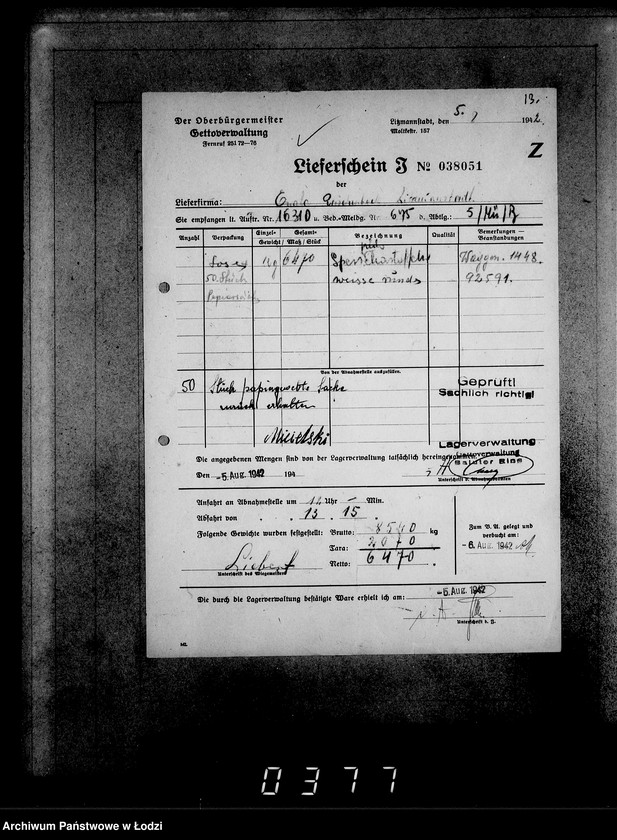 13.
Der Oberbürgermeister
Gettoverwaltung
Fernruf 251 72—76
Litzmannstadt, den 5. 1942.
Moltkestr. 157
Z
Lieferschein J № 038051
der
Lieferfirma: Litzmannstadt
Sie empfangen lt. Auftr. Nr. 16310 u. Bed.-Meldg. Nr. 675 v. Abtlg.: 5/Hü/R
Anzahl Verpackung Einzel-Gewicht Gesamt-Gewicht/Maß/Stück Bezeichnung Qualität Bemerkungen — Beanstandungen
lose kg 6470 Speisekartoffeln Waggon. 1448.
50 Stück weisse runde 92591.
Papiersäcke
Von der Abnahmestelle auszufüllen.
50 Stück papiergewebte Säcke
zurück erhalten
Geprüft!
Sachlich richtig!
Lagerverwaltung
Die angegebenen Mengen sind von der Lagerverwaltung tatsächlich hereingenommen.
Den -5. Aug. 1942 194
Unterschrift d. Abnahmestellen
Anfahrt an Abnahmestelle um 12 Uhr — Min.
Abfahrt von „ „ 13 „ 15 „
Folgende Gewichte wurden festgestellt: Brutto: 8540 kg
Tara: 2070 „
Netto: 6470 „
Unterschrift des Wiegemeisters
Zum B. A. gelegt und
verbucht am:
-6. Aug. 1942
Die durch die Lagerverwaltung bestätigte Ware erhielt ich am: -5. Aug. 1942
Unterschrift d. B.
0377
Archiwum Państwowe w Łodzi